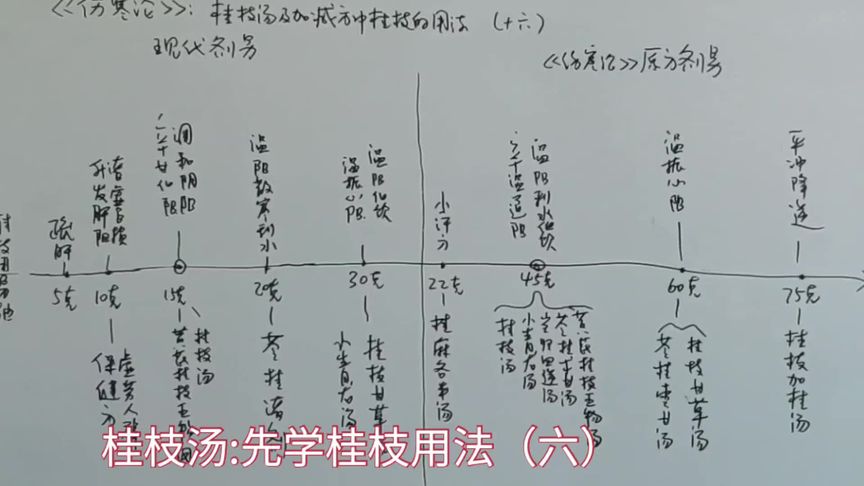 《伤寒论》：桂枝汤及加减方中桂枝的用法（十六）
现代剂量
《伤寒论》原方剂量
疏肝
升发肝阳
调和阴阳
辛甘化阳
温阳散寒利水
温阳化饮
温振心阳
小汗方
温阳利水化饮
辛甘温通阳
温振心阳
平冲降逆
5克
10克
15克
20克
30克
22克
45克
60克
75克
保健方
桂枝汤
黄芪桂枝五物汤
苓桂
桂枝甘草汤
小青龙汤
桂麻各半汤
桂枝汤
小青龙汤
苓桂术甘汤
黄芪桂枝五物汤
苓桂枣甘汤
桂枝甘草汤
桂枝加桂汤
桂枝汤:先学桂枝用法（六）